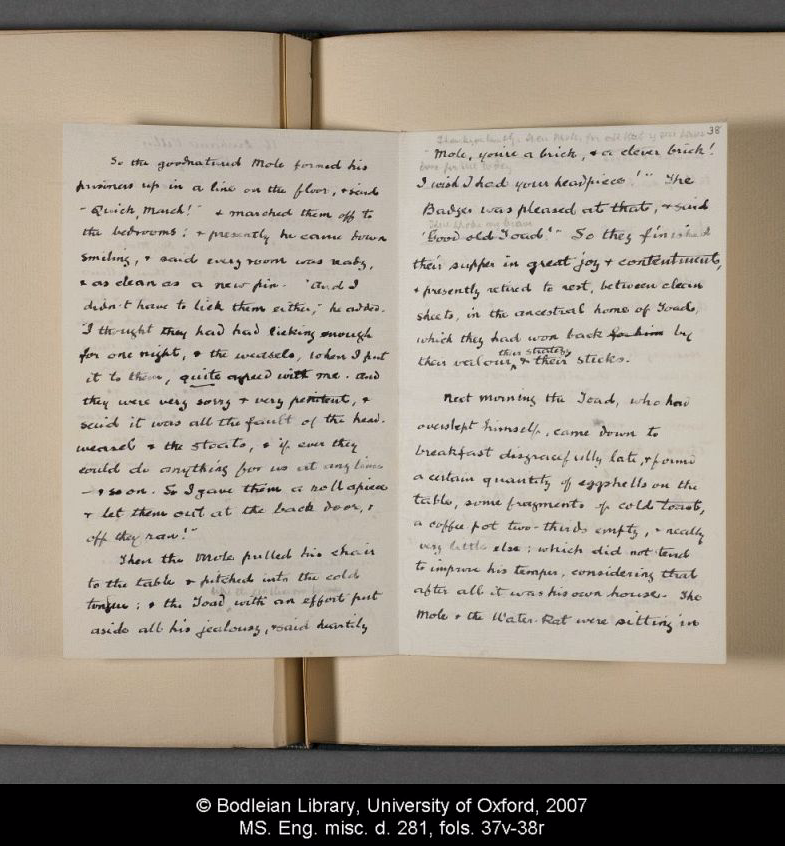 So the goodnatured Mole formed his
prisoners up in a line on the floor, & said
"Quick, March!" & marched them off to
the bedrooms: & presently he came down
smiling, & said every room was ready,
& as clean as a new pin. "And I
didn't have to lick them either," he added.
"I thought they had had licking enough
for one night, & the weasels, when I put
it to them, quite agreed with me. And
they were very sorry & very penitent, &
said it was all the fault of the head-
weasel & the stoats, & if ever they
could do anything for us at any time
— & so on. So I gave them a roll apiece
& let them out at the back door, &
off they ran!"
Then the Mole pulled his chair
to the table & pitched into the cold
tongue; & the Toad, with an effort put
aside all his jealousy, & said heartily
38
Thank you kindly, dear Mole, for all
"Mole, you're a brick, & a clever brick!
I wish I had your headpiece!" The
Badger was pleased at that, & said
"Good old Toad!" So they finished
their supper in great joy & contentment,
& presently retired to rest, between clean
sheets, in the ancestral home of Toad,
which they had won back for him by
their strategy
their valour, & their sticks.
Next morning the Toad, who had
overslept himself, came down to
breakfast disgracefully late, & found
a certain quantity of eggshells on the
table, some fragments of cold toast,
a coffee pot two-thirds empty, & really
very little else; which did not tend
to improve his temper, considering that
after all it was his own house. The
Mole & the Water-Rat were sitting in
© Bodleian Library, University of Oxford, 2007
MS. Eng. misc. d. 281, fols. 37v-38r